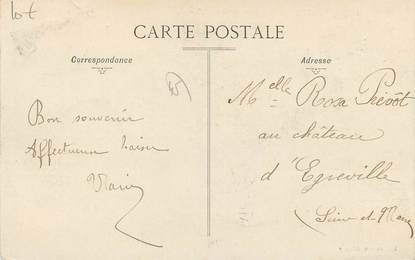 lot
CARTE POSTALE
Correspondance
Adresse
45
Bon souvenir
Affectueux baiser
Marie
Melle Rosa Prévôt
au château
d'Egreville
(Seine et Marne